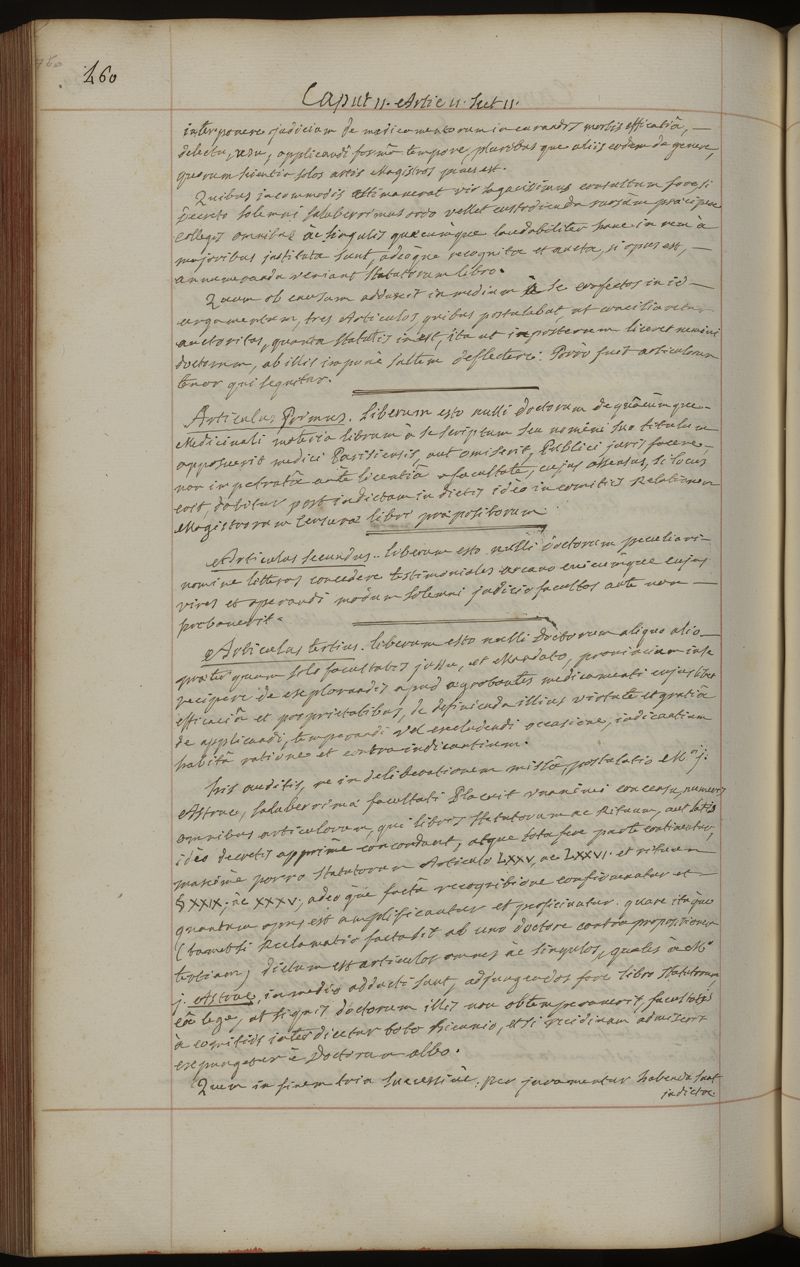 460
Caput 11. Artic 11. Sect 11.
interponere judicium de medicamentorum in curandis morbis efficatiâ, —
delectu, usu, applicandi formâ tempore, pluribus que aliis eodem de genere,
quorum scientia solos artis Magistros penes est.
Quibus incommodis existimaverat vir sagacissimus consultum fore si
Decreto solemni saluberrimus ordo vellet custodienda rursum praecipere
collegis omnibus ac singulis quaecumque laudabiliter hanc in rem à
majoribus instituta sunt, adeoque recognita et aucta, si opus est, —
annumeranda veniant statutorum libro.
Quam ob causam adduxit in medium à se confectos in id —
argumentum, tres Articulos, quibus postulabat ut conciliaretur
auctoritas, quanta statutis inest, ita ut in posterum liceret nemini
doctorum, ab illis impunè saltem deflectere. Porrò fuit articulorum
tenor qui sequitur.
Articulus Primus. Liberum esto nulli doctorum de quâcumque —
Medicinali materia librum à se scriptum seu nomini suo titulum
apposuerit medici Parisiensis, aut omiserit, Publici juris facere,
non impetratâ ante licentiâ a facultate, cujus assensus, si locus
erit dabitur post indictam in dictis ideo in comitiis Relationem
Magistrorum Censurae libri propositorum
Articulus secundus.. liberum esto nulli doctorum peculiari
nomine litteras concedere testimoniales arcano cuicumque cujus
vires et operandi modum solemni judicio facultas ante non —
probaverit.
Articulus tertius. liberum esto nulli Doctorum aliquo alio —
praeter quam solo facultatis jussu, et Mandato, provinciam in se
recipere de explorandis apud aegrotantes medicamenti cujuslibet
efficaciâ et proprietatibus, de definienda illius virtute et gratiâ
de applicandi, temperandi vel excludendi occasione, indicantium
habitâ ratione et contra indicantium.
his auditis, re in deliberationem missâ, postulatio Mri j.
Astruc, saluberrimae facultati Placuit unanimi concensu, numeris
omnibus articulorum, qui libris statutorum ac Rituum, aut latis
ideo decretis apprimè concordant, atque tota fere parte continentur,
maximè porro statutorum Articulo LXXV, ac LXXVI. et rituum
§ XXIX; ac XXXV; adeo que facta recognitione confirmantur et —
quantum opus est amplificantur et perficiuntur. quare itaque
(tametsi Reclamatio facta sit ab uno doctore contra propositionem
tertiam) dictum est articulos omnes ac singulos, quales a Mro
j. Astruc, in medio adducti sunt, adjungendos fore libro statutorum
eâ lege, ut si quis doctorum illis non obtemperaverit, facultatis
à comitiis interdicetur toto bicunio, et si recidivam admiserit
expungetur è Doctorum albo.
Quem in finem tria successivè, per juramentum habenda sunt
indictae